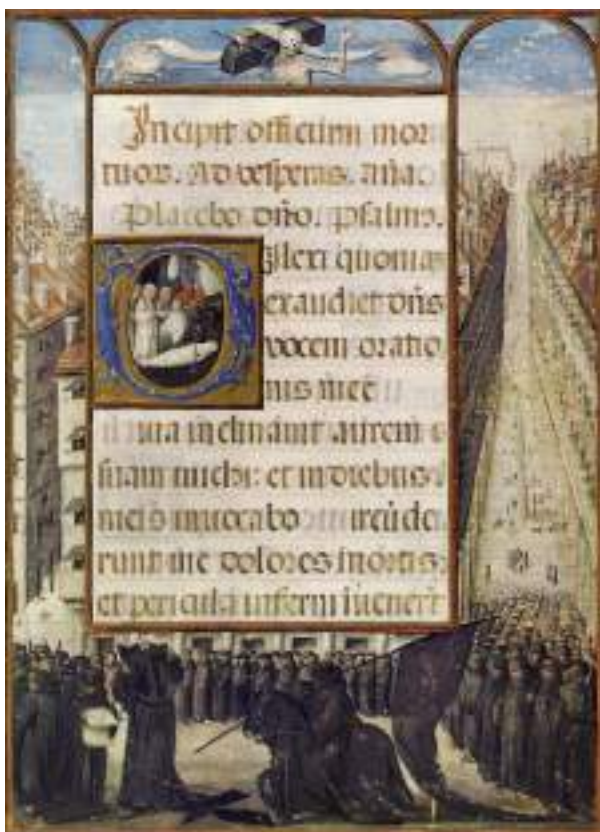 Incipit officium mor
tuor. Ad vesperas. aña.
Placebo dño. psalmus.
Dilexi quoniam
exaudiet dñs
vocem oratio
nis mee
Quia inclinavit aurem
suam michi: et in diebus
meis invocabo Circūde
runt me dolores mortis:
et pericula inferni īvenerūt